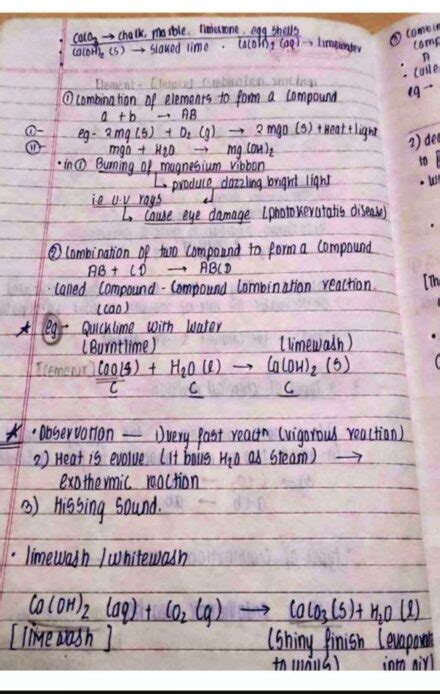 CaCO3 → chalk, marble, limestone, egg shells
Ca(OH)2 (s) → slaked lime · Ca(OH)2 (aq) → limewater
① Combination of elements to form a compound
a + b → AB
①- eg- 2mg(s) + O2 (g) → 2mgo (s) + Heat + light
②- mgo + H2O → mg(OH)2
· in ① Burning of magnesium ribbon
↳ produce dazzling bright light
i.e U.V rays
↳ Cause eye damage (photokeratatis disease)
② Combination of two compound to form a compound
AB + CD → ABCD
· Called Compound - Compound Combination reaction.
(CaO)
★ eg- Quicklime with water
(Burntlime) (limewash)
[CEMENT] CaO(s) + H2O (l) → Ca(OH)2 (s)
C C C
★ · Observation — 1) very fast reactn (vigorous reaction)
2) Heat is evolve (it boils H2O as steam) →
exothermic reaction
3) Hissing sound.
· limewash / whitewash
Ca(OH)2 (aq) + CO2 (g) → CaCO3 (s) + H2O (l)
[limewash] (Shiny finish (evaporate
to walls) into air)
②
A
eg →
2) de
to
[Th